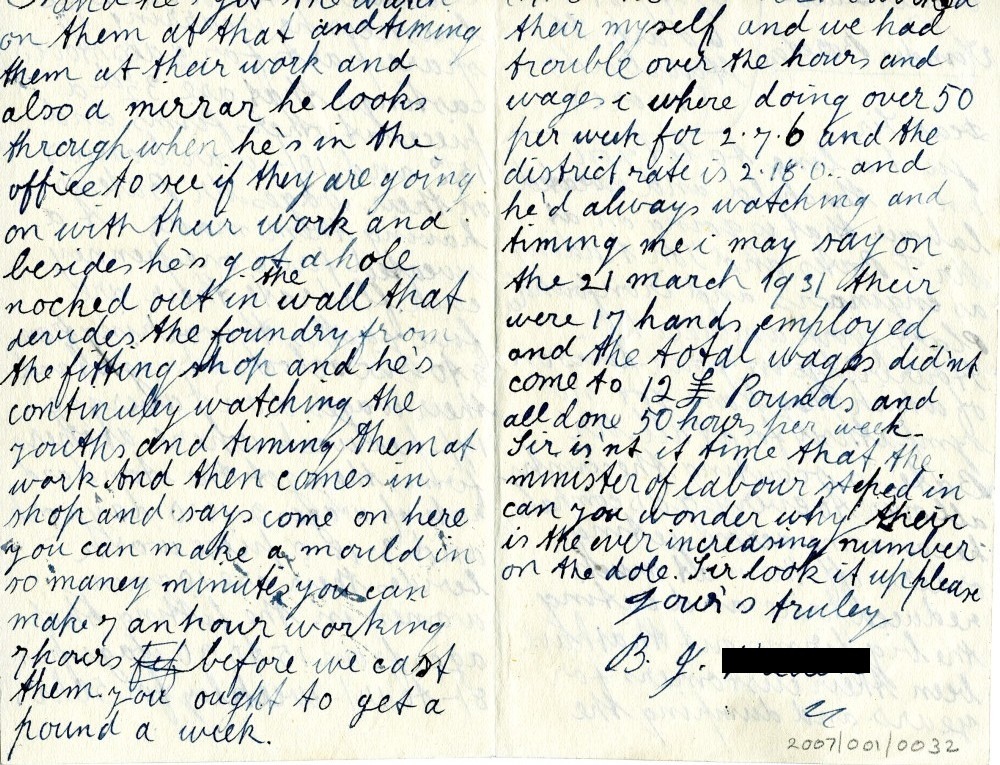 and he's got the watch
on them at that and timing
them at their work and
also a mirrar he looks
through when he's in the
office to see if they are going
on with their work and
besides he's got a hole
noched out in the wall that
devides the foundry from
the fitting shop and he's
continuley watching the
youths and timing them at
work and then comes in
shop and says come on here
you can make a mould in
so maney minutes you can
make 7 an hour working
7 hours before we cast
them. you ought to get a
pound a week.
their myself and we had
trouble over the hours and
wages i where doing over 50
per week for 2.7.6 and the
district rate is 2.18.0. and
he'd always watching and
timing me i may say on
the 21 march 1931 their
were 17 hands employed
and the total wages did'nt
come to 12 £ Pounds and
all done 50 hours per week.
Sir is'nt it time that the
minister of labour steped in
can you wonder why their
is the ever increasing number
on the dole. Sir look it up please
your's truley
B. J.
2007/001/0032